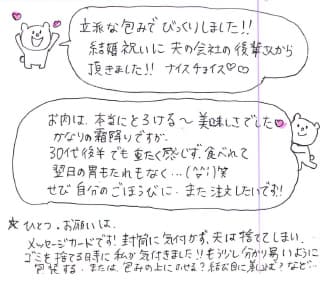 立派な包みでびっくりしました!!
結婚祝いに夫の会社の後輩さんから
頂きました!! ナイスチョイス♡♡
お肉は、本当にとろける〜美味しさでした♥
かなりの霜降りですが、
30代後半でも重たく感じず、食べれて
翌日の胃もたれもなく…(^^;)笑
ぜひ自分のごほうびに、また注文したいです!!
★ひとつ、お願いは、
メッセージカードです!封筒に気付かず、夫は捨ててしまい、
ゴミを捨てる日手に私が気付きました!!もう少し分かり易いように
包装する、または、包みの上にのせる?結び目に差し込む?など…